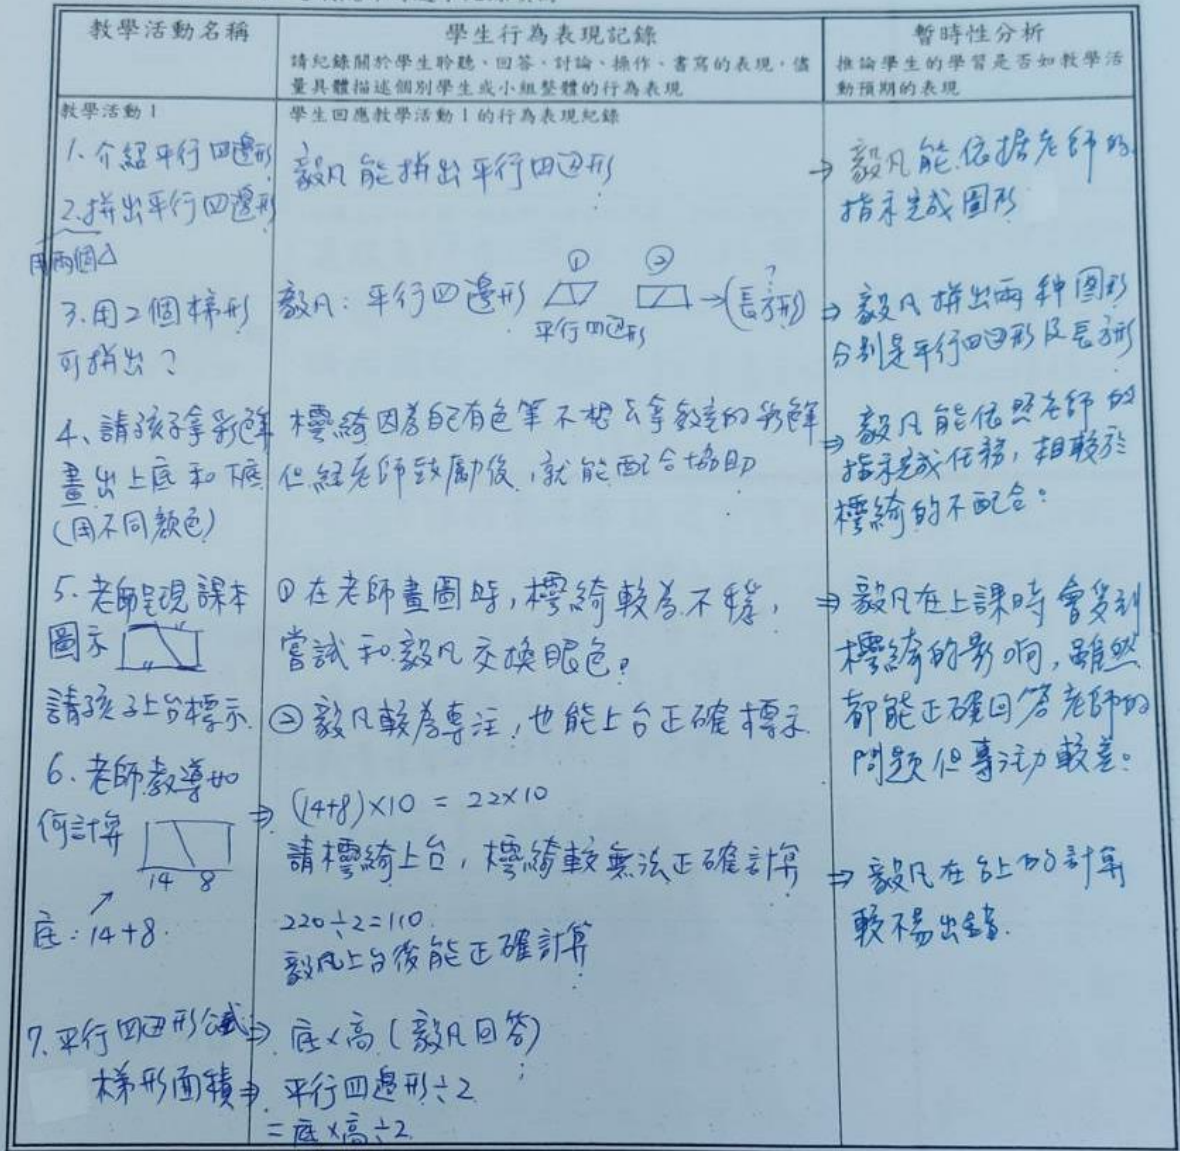 教學活動名稱
學生行為表現記錄
請紀錄關於學生聆聽、回答、討論、操作、書寫的表現，儘
量具體描述個別學生或小組整體的行為表現
暫時性分析
推論學生的學習是否如教學活
動預期的表現
教學活動1
學生回應教學活動1的行為表現紀錄
1. 介紹平行四邊形
2. 拼出平行四邊形
用兩個△
毅凡能拼出平行四边形
→ 毅凡能依据老師的
指示完成圖形
3. 用2個梯形
可拼出？
毅凡：平行四邊形 ① ②
平行四边形
→(長方形)?
⇒ 毅凡拼出兩种圖形
分别是平行四边形及長方形
4、請孩子拿彩色筆
畫出上底和下底
(用不同顏色)
櫻綺因為自己有色筆不想去拿教室的彩色筆
但經老師鼓勵後，就能配合協助
⇒ 毅凡能依照老師的
指示完成任務，相較於
櫻綺的不配合。
5. 老師呈現課本
圖示
請孩子上台標示.
① 在老師畫圖時，櫻綺較為不穩，
嘗試和毅凡交換眼色。
② 毅凡較為專注，也能上台正確標示
⇒ 毅凡在上課時會受到
櫻綺的影响，雖然
都能正確回答老師的
問題但專注力較差。
6. 老師教導如
何計算
14 8
底：14+8.
⇒ (14+8)×10 = 22×10
請櫻綺上台，櫻綺較無法正確計算
220÷2=110.
毅凡上台後能正確計算
⇒ 毅凡在台上的計算
較不易出錯.
7. 平行四边形公式⇒ 底×高 (毅凡回答)
梯形面積⇒ 平行四邊形÷2
= 底×高÷2